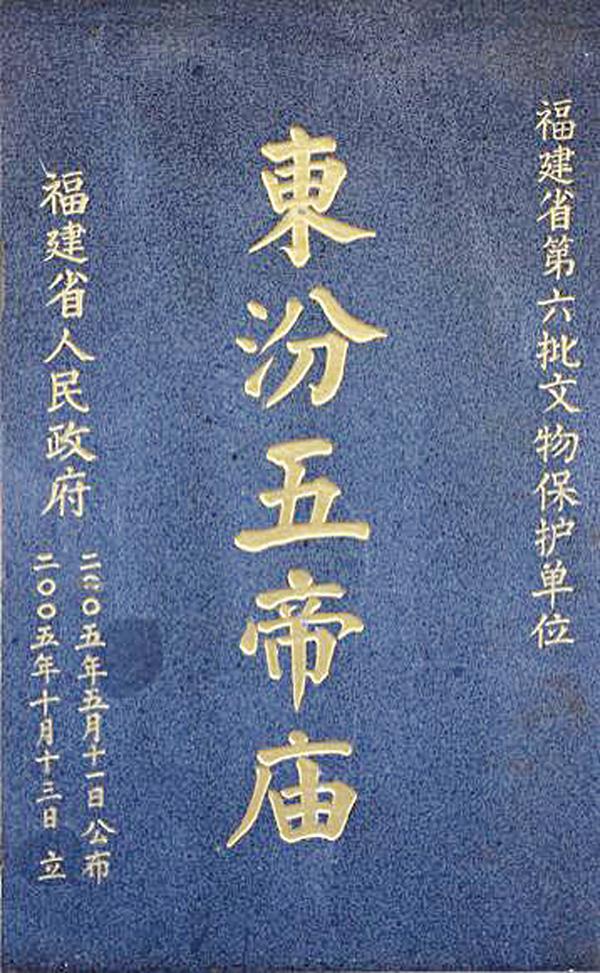 福建省第六批文物保护单位
東汾五帝庙
福建省人民政府
二〇〇五年五月十一日 公布
二〇〇五年十月十三日 立